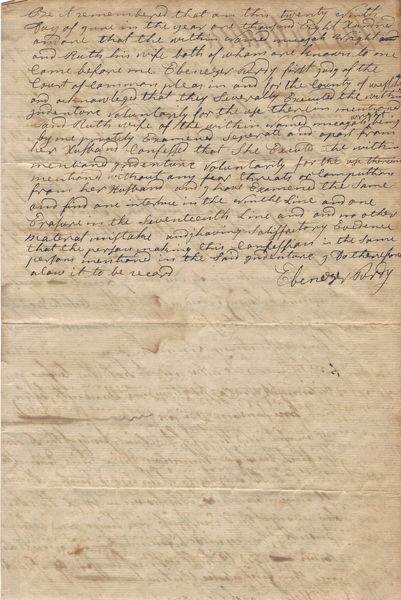 Be it remembered that on this twenty ninth
Day of June in the year one thousand Eight hundred
and one that the within named Wright
and Ruth his wife both of whom are known to me
Came before me Ebenezer Purdy first Judg of the
Court of Common pleas in and for the County of
and acknowleged that they Severally Executed the within
Indenture Voluntarily for the use therein mentioned
and Ruth wife of the within named Wright being
by me privately Examined Seperate and apart from
her Husband Confessed that She Excute the within
mentiond Indenture Voluntarily for the use therein
mentiond without any fear threats or Compultion
from her Husband and I have Examened the Same
and find one interline in the Line and one
Erasure in the Seventeenth Line and and no other
material mistake and having Satisfactory Evidence
that the persons making this Confession is the Same
persons mentiond in the Said Indenture I Do therefore
alow it to be record
Ebenezer Purdy